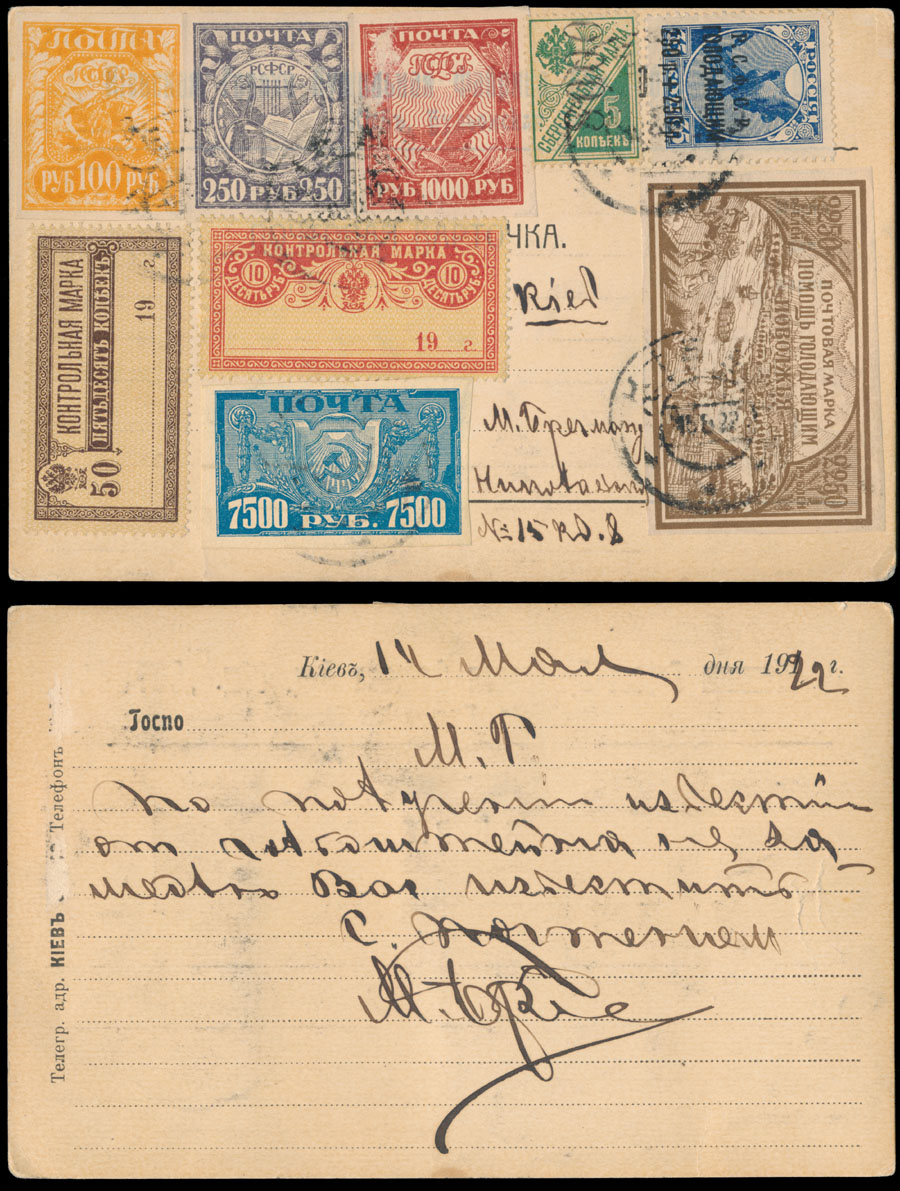 ПОЧТА
РСФСР
РУБ 100 РУБ
ПОЧТА
РСФСР
250 РУБ 250
ПОЧТА
РСФСР
РУБ 1000 РУБ
СБЕРЕГАТЕЛЬНАЯ МАРКА
5
КОПѢЕКЪ
РОССІЯ
Р. С. Ф. С. Р.
ГОЛОДАЮЩИМ
ЧКА.
Kiev
КОНТРОЛЬНАЯ МАРКА
ПЯТЬДЕСЯТЪ КОПѢЕКЪ
50
19 г.
КОНТРОЛЬНАЯ МАРКА
10 10
ДЕСЯТЬ РУБ. ДЕСЯТЬ РУБ.
19 г.
ПОЧТА
7500 РУБ. 7500
2250
ПОЧТОВАЯ МАРКА
ПОМОЩЬ ГОЛОДАЮЩИМ
ПОВОЛЖЬЯ
2250
М. Брегману
№ 15 кв. 8
Кіевъ, 14 Мая дня 1922 г.
Госпо
М. Г.
По получении извѣстій
от
Вас извѣстить
С почтением
Телегр. адр. КІЕВЪ Телефонъ